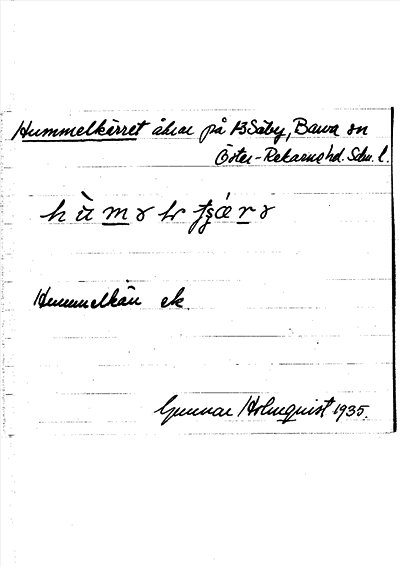 Hummelkärret åkrar på Säby, Barva sn
Öster-Rekarne hd. Sdm. l.
Hummelkärr ek.
Gunnar Holmquist 1935.